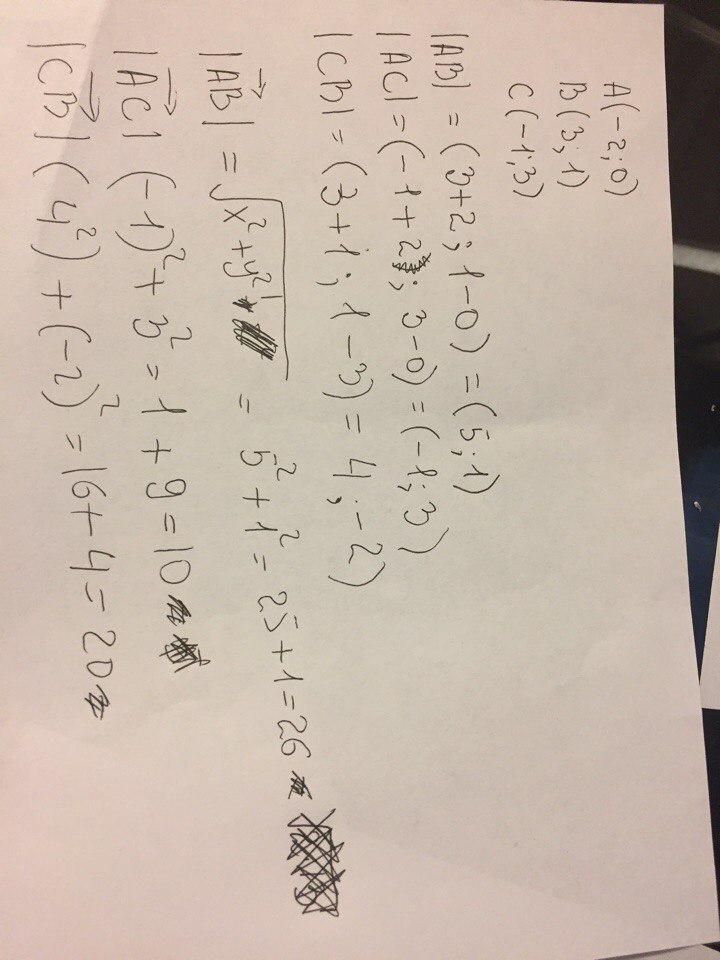 A(-2;0)
B(3;1)
C(-1;3)
|AB| = (3+2; 1-0) = (5;1)
|AC| = (-1+2; 3-0) = (-1;3)
|CB| = (3+1; 1-3) = 4;-2)
|AB→| = √x²+y² = 5²+1² = 25+1=26
|AC→| (-1)²+3² = 1+9=10
|CB→| (4²)+(-2)² = 16+4=20